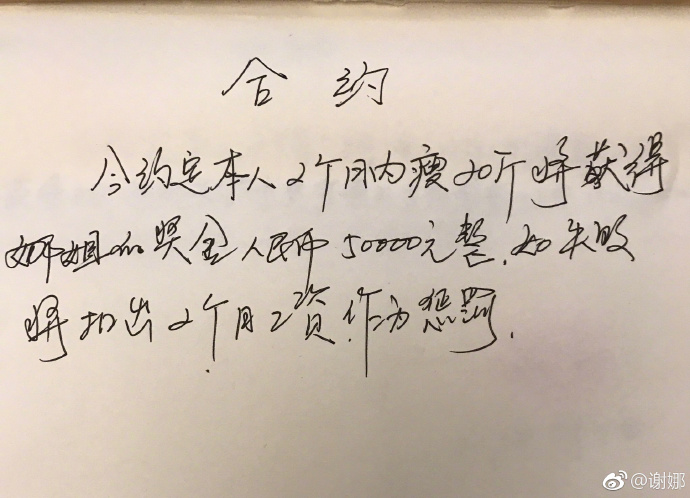 合约
今约定本人2个月内瘦20斤将获得
娜姐的奖金人民币50000元整,如失败
将扣出2个月工资作为惩罚.
@谢娜